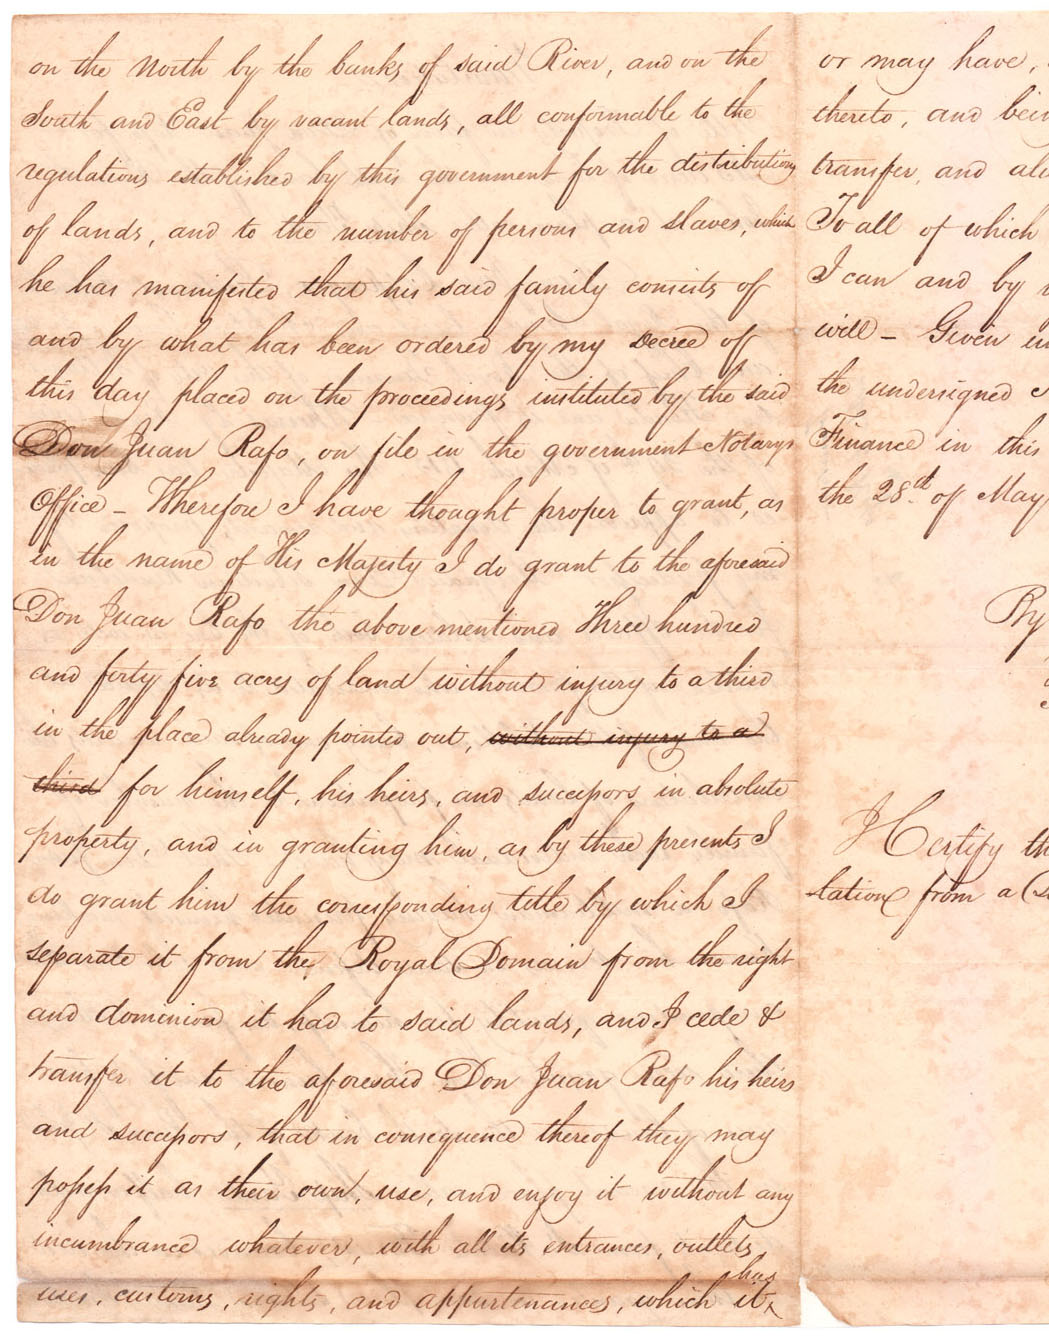 on the North by the banks of said River, and on the
South and East by vacant lands, all conformable to the
regulations established by this government for the distribution
of lands, and to the number of persons and slaves, which
he has manifested that his said family consists of
and by what has been ordered by my Decree of
this day placed on the proceedings instituted by the said
Don Juan Rafo, on file in the government Notarys
Office – Wherefore I have thought proper to grant, as
in the name of His Majesty I do grant to the aforesaid
Don Juan Rafo the above mentioned Three hundred
and forty five acres of land without injury to a third
in the place already pointed out, without injury to a
third for himself, his heirs, and successors in absolute
property, and in granting him, as by these presents I
do grant him the corresponding title by which I
separate it from the Royal Domain from the right
and dominion it had to said lands, and I cede &
transfer it to the aforesaid Don Juan Rafo his heirs
and successors, that in consequence thereof they may
possess it as their own, use, and enjoy it without any
incumbrance whatever, with all its entrances, outlets
uses, customs, rights, and appurtenances, which it has
or may have,
thereto, and bein
transfer, and al
To all of which
I can and by
will – Given in
the undersigned
Finance in this
the 28.d of May
By
I Certify th
lation from a